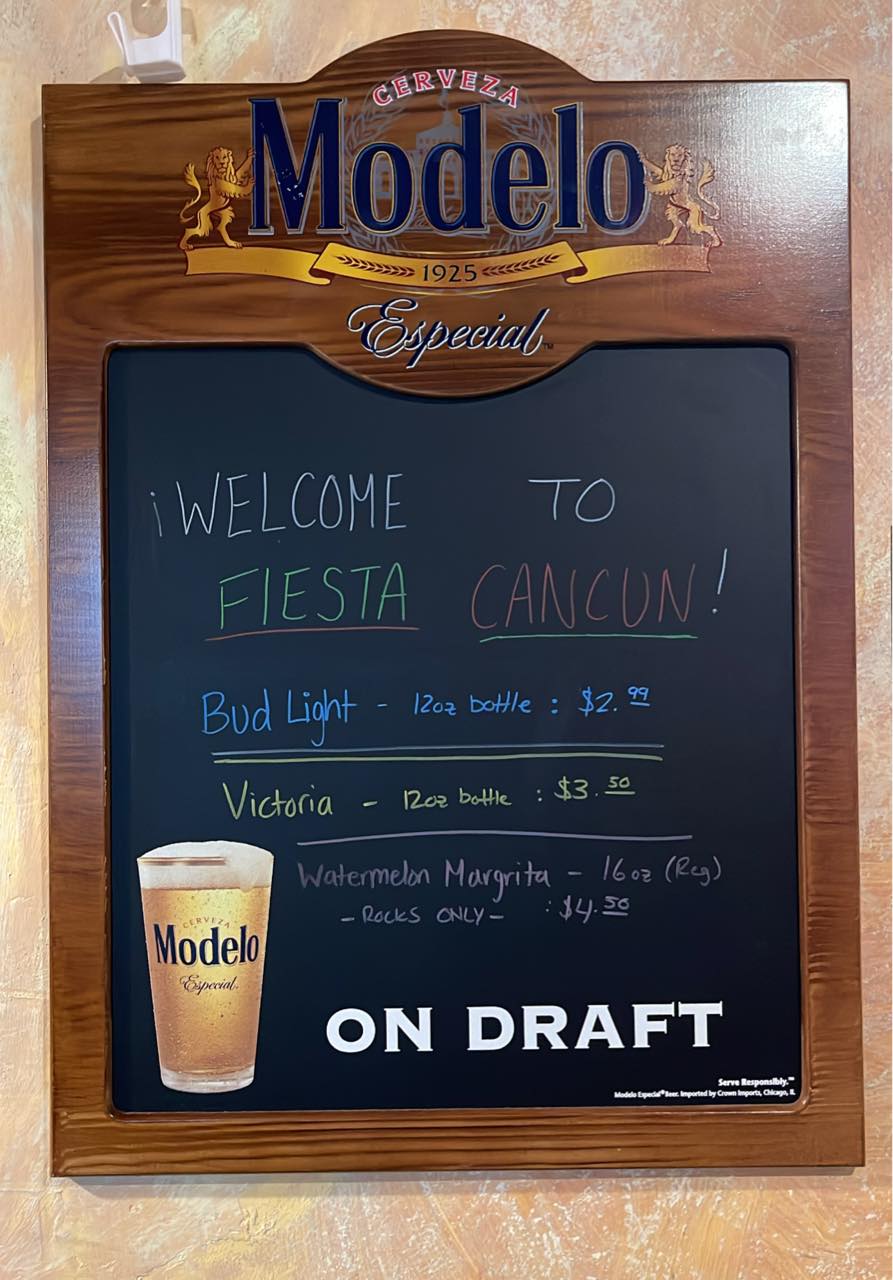 CERVEZA
Modelo
1925
Especial™
¡WELCOME TO
FIESTA CANCUN!
Bud Light - 12oz bottle : $2.99
Victoria - 12oz bottle : $3.50
Watermelon Margrita - 16oz (Reg)
- ROCKS ONLY - : $4.50
CERVEZA
Modelo
Especial
ON DRAFT
Serve Responsibly.™
Modelo Especial® Beer. Imported by Crown Imports, Chicago, IL